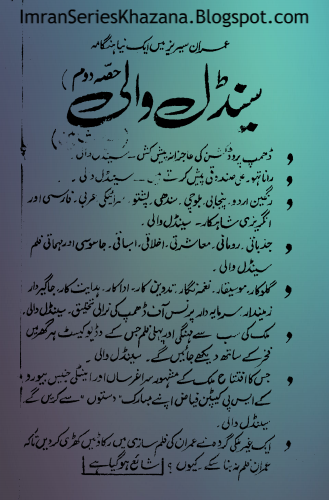 ImranSeriesKhazana.Blogspot.Com
عمران سیریز میں ایک نیا ہنگامہ
سینڈل والی (حصہ دوم)
ڈھمپ پروڈکشن کی عاجزانہ پیش کش ۔۔ سینڈل والی
رانا تہور علی صندوقی پیش کرتے ہیں ۔۔۔ سینڈل والی
رنگین اردو، پنجابی، بلوچی، سندھی، پشتو، سرائیکی، عربی، فارسی اور
انگریزی شاہکار۔ سینڈل والی۔
جذباتی، رومانی، معاشرتی، اخلاقی، اسباقی، جاسوسی اور جہاتی فلم
سینڈل والی۔
گلوکار، موسیقار، نغمہ نگار، تدوین کار، اداکار، ہدایت کار، جاگیردار
زمیندار، سرمایہ دار پرنس آف ڈھمپ کی نرالی تخلیق۔ سینڈل والی۔
ملک کی سب سے مہنگی اور پہلی فلم جس کے وڈیو کیسٹ ہر گھر میں
فخر کے ساتھ دیکھے جائیں گے۔ سینڈل والی۔
جس کا افتتاح ملک کے مشہور سراغرساں اور انٹیلی جنس بیورو
کے ایس پی کیپٹن فیاض اپنے مبارک "دستوں" سے کریں گے
سینڈل والی۔
ایک غیر ملکی گروہ نے عمران کی فلم سازی میں رکاوٹیں کھڑی کر دیں تاکہ
عمران فلم نہ بنا سکے۔ کیوں؟ شائع ہو گیا ہے